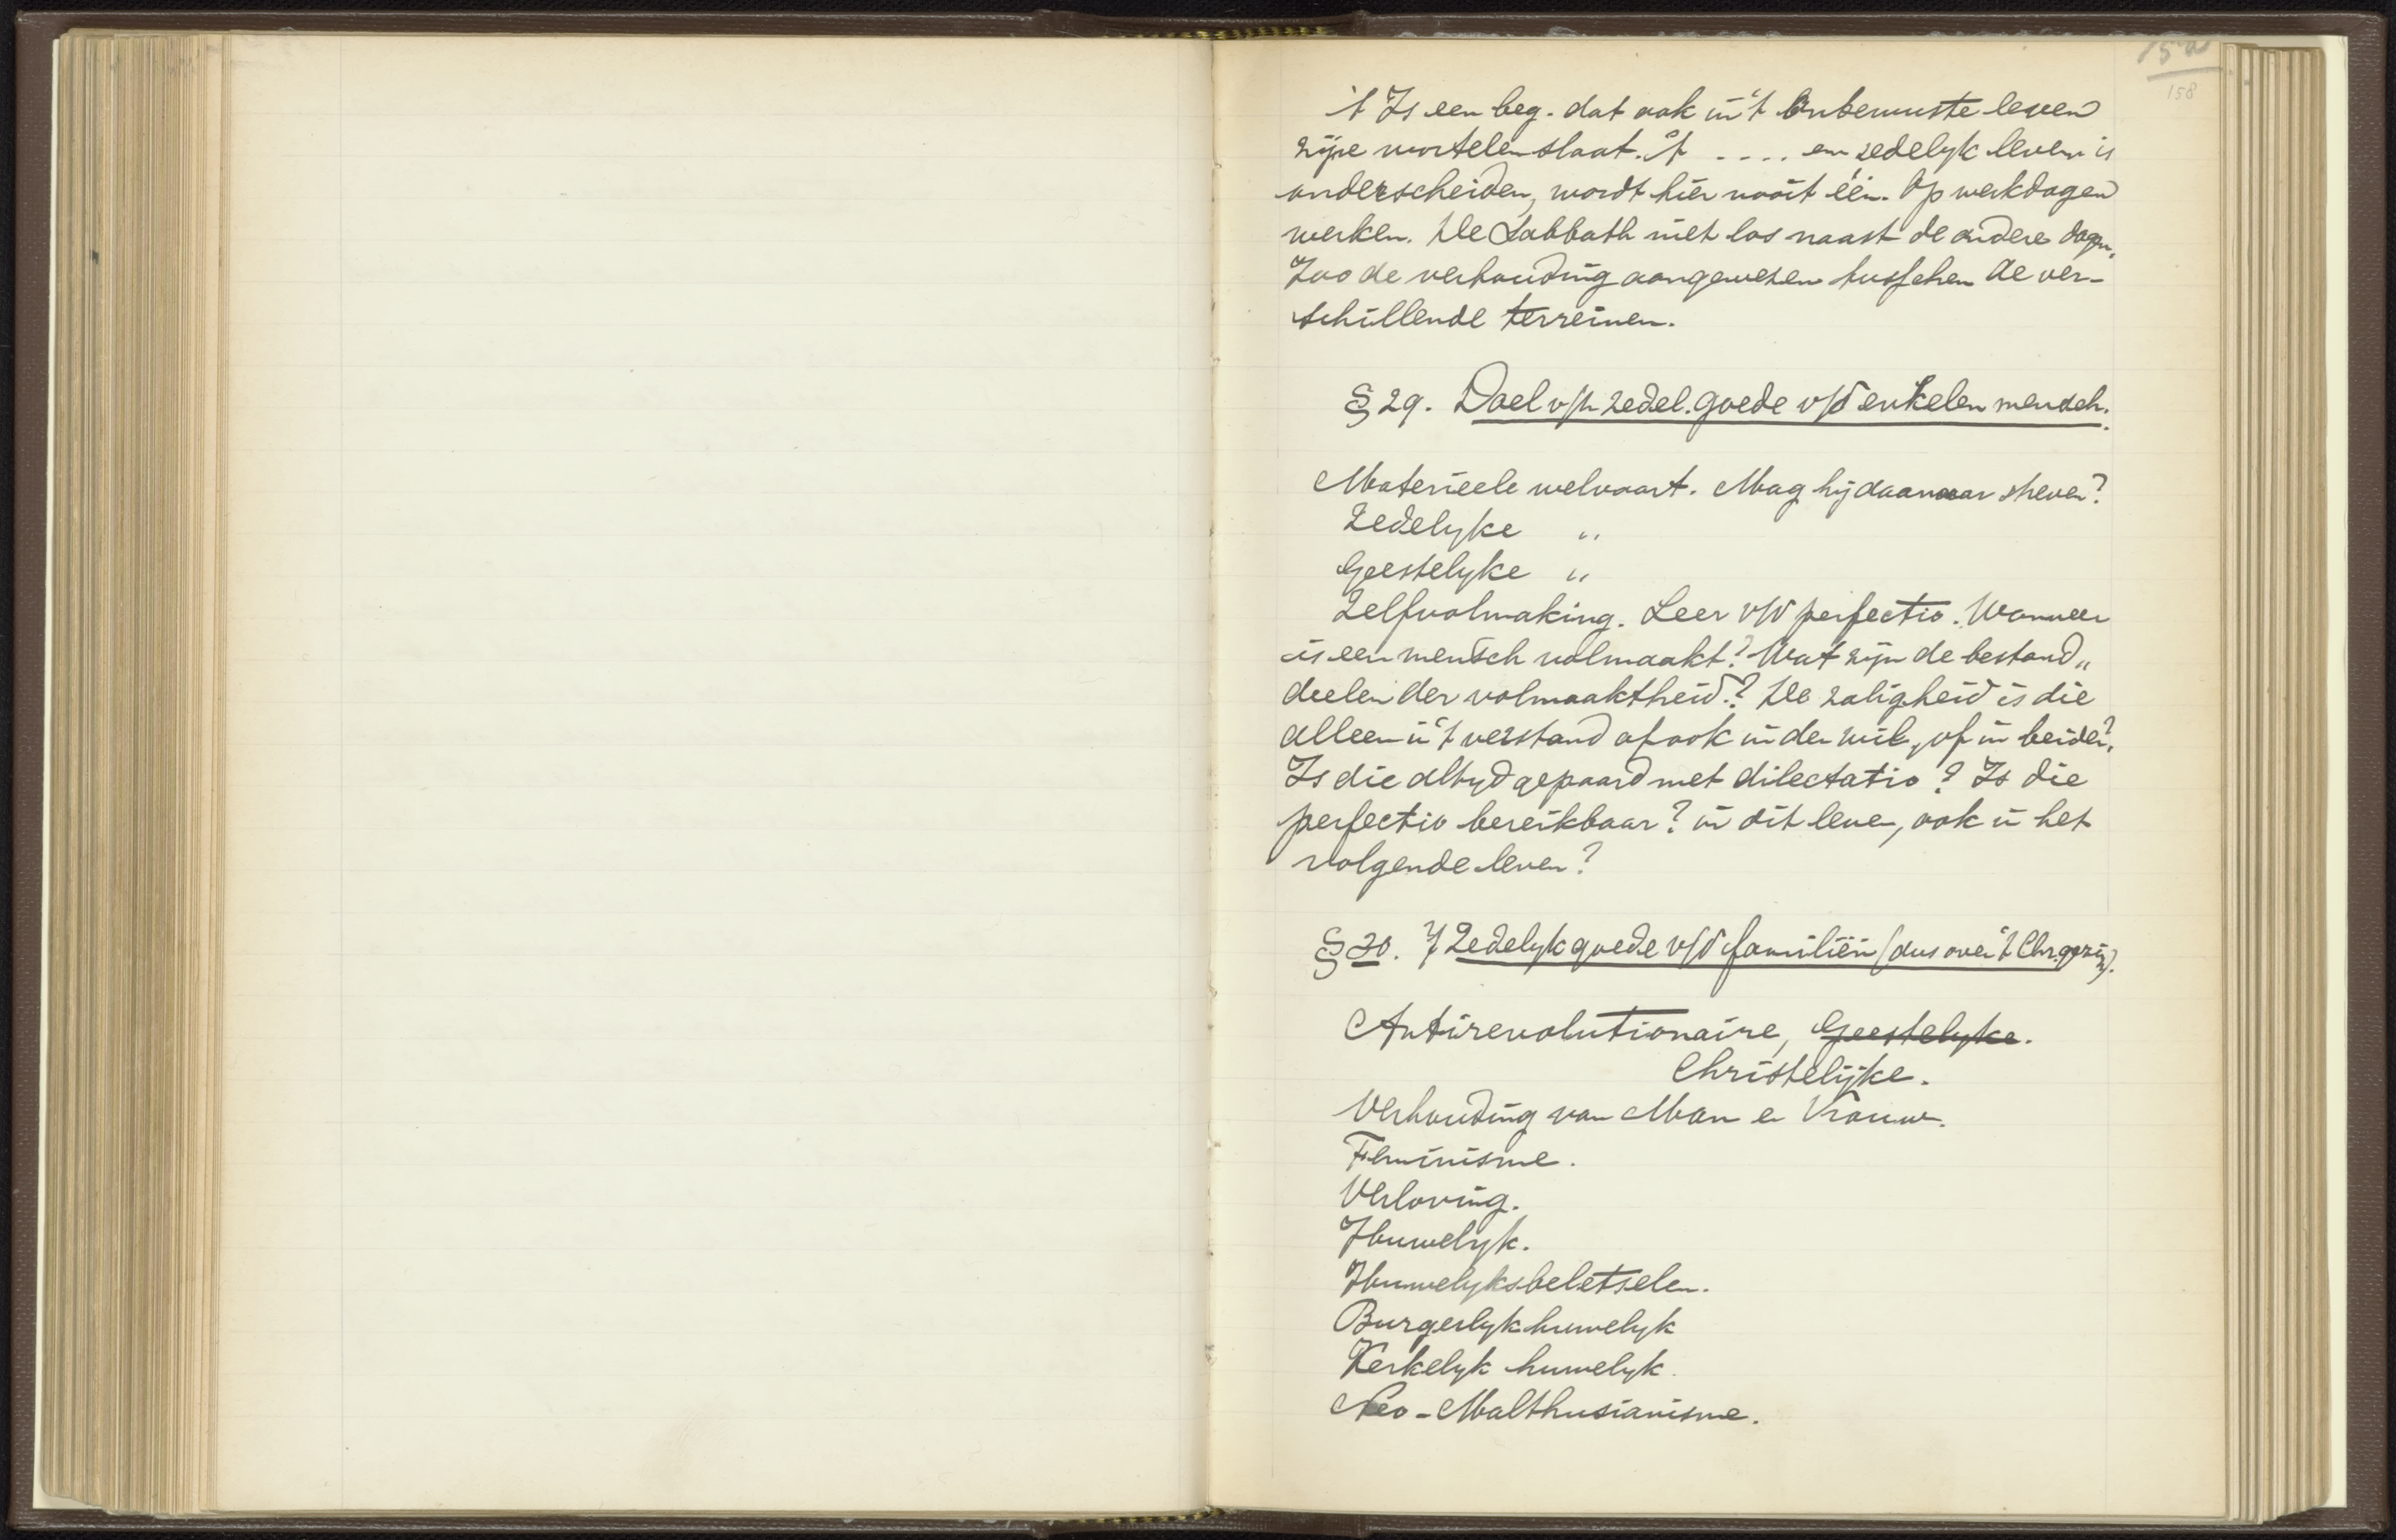 15a
158
't Is een beg. dat ook in 't onbewuste leven
zijne wortelen slaat. 't .... en zedelyk leven is
onderscheiden, wordt hier nooit één. Op werkdagen
werken. De Sabbath niet los naast de andere dagen.
Zoo de verhouding aangewezen tusschen de ver-
schillende terreinen.
§ 29. Doel v/h zedel. goede v/d enkelen mensch.
Materieele welvaart. Mag hij daarnaar streven?
Zedelyke „
Geestelyke „
Zelfvolmaking. Leer v/d perfectio. Wanneer
is een mensch volmaakt? Wat zijn de bestand„
deelen der volmaaktheid? De zaligheid is die
alleen in 't verstand of ook in den wil, of in beiden?
Is die altyd gepaard met dilectatio? Is die
perfectio bereikbaar? in dit leven, ook in het
volgende leven?
§ 30. 't Zedelyk goede v/d familiën (dus over 't Chr. gezin).
Antirevolutionaire, Geestelyke.
Christelijke.
Verhouding van Man en Vrouw.
Feminisme.
Verloving.
Huwelyk.
Huwelyksbeletselen.
Burgerlyk huwelyk
Kerkelyk huwelyk.
Neo-Malthusianisme.